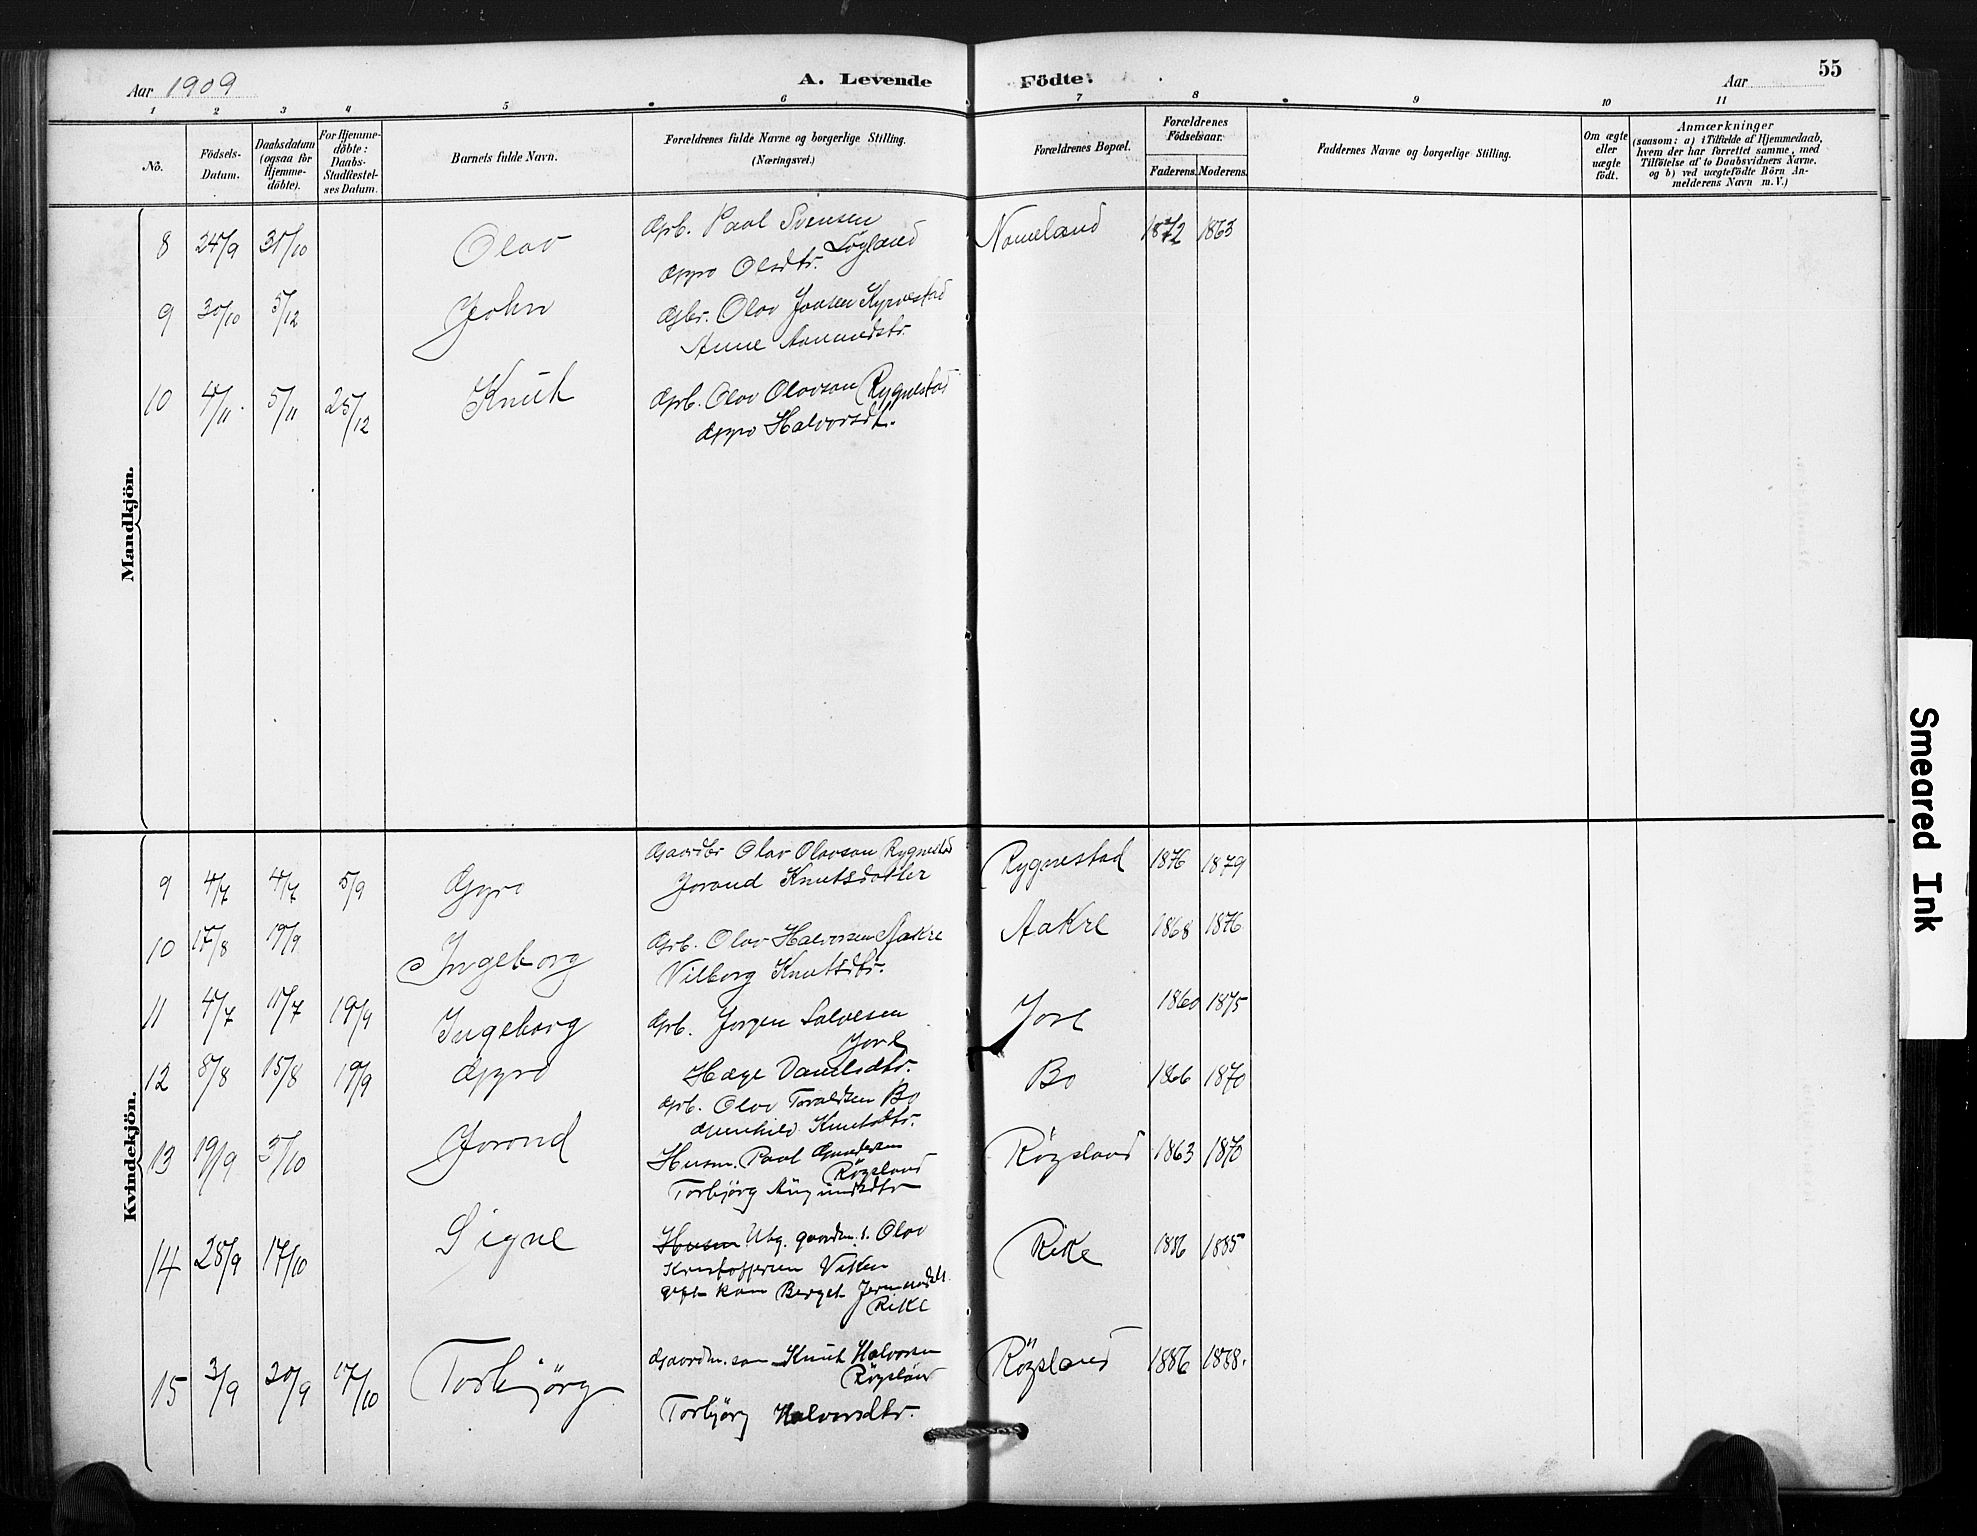 Aar 1909
A. Levende Födte.
Aar
55
1 2 3 4 5 6 7 8 9 10 11
No.
Födsels-
Datum.
Daabsdatum
(ogsaa for
Hjemme-
döbte).
For Hjemme-
döbte:
Daabs-
Stadfæstel-
ses Datum.
Barnets fulde Navn.
Forældrenes fulde Navne og borgerlige Stilling.
(Næringsvei.)
Forældrenes Bopæl.
Forældrenes
Födselsaar.
Faderens. Moderens.
Faddernes Navne og borgerlige Stilling.
Om ægte
eller
uægte
födt.
Anmærkninger
(saasom: a) i Tilfælde af Hjemmedaab,
hvem der har forrettet samme, med
Tilföielse af to Daabsvidners Navne,
og b) ved uægtefödte Börn An-
melderens Navn m. V.)
Mandkjön.
8 24/9 31/10 Olav Gprb. Paal Svensen Nomeland 1872 1863
Løgland
Gyro Olsdtr.
9 30/10 5/12 John Gbr. Olav Jonsen
Anne Aanundsdtr.
10 4/11 5/11 25/12 Knut Gprb. Olav Olavson Rygnestad
Gyro Halvorsdt.
Kvindekjön.
9 4/7 4/7 5/9 Gyro Gaardbr Olav Olavson Rygnestad Rygnestad 1876 1879
Jorand Knutsdatter
10 17/8 19/9 Ingeborg Gprb. Olav Halvorsen Aakre Aakre 1868 1876
Vilborg Knutsdtr.
11 4/7 11/7 19/9 Ingeborg Gprb. Jorgen Salvesen Jore 1860 1875
Jore
Hæge Danielsdtr.
12 8/8 15/8 19/9 Gyro Gprb. Olav Toraldsen Bo Bo 1866 1870
Gunhild Knutsdtr.
13 19/9 3/10 Jorond Husm. Paal Gundersen Röysland 1863 1870
Röysland
Torbjörg Aagundsdtr
14 28/9 17/10 Signe Husm. Ubg. gaardm. s. Olav Rike 1886 1885
Kristoffersen Viken
gift kon Berget
Rike
15 3/9 20/9 17/10 Torbjörg Gaardm. søn Knut Halvorsen Röysland 1886 1888.
Röysland
Torbjörg Halvorsdtr.
Smeared Ink